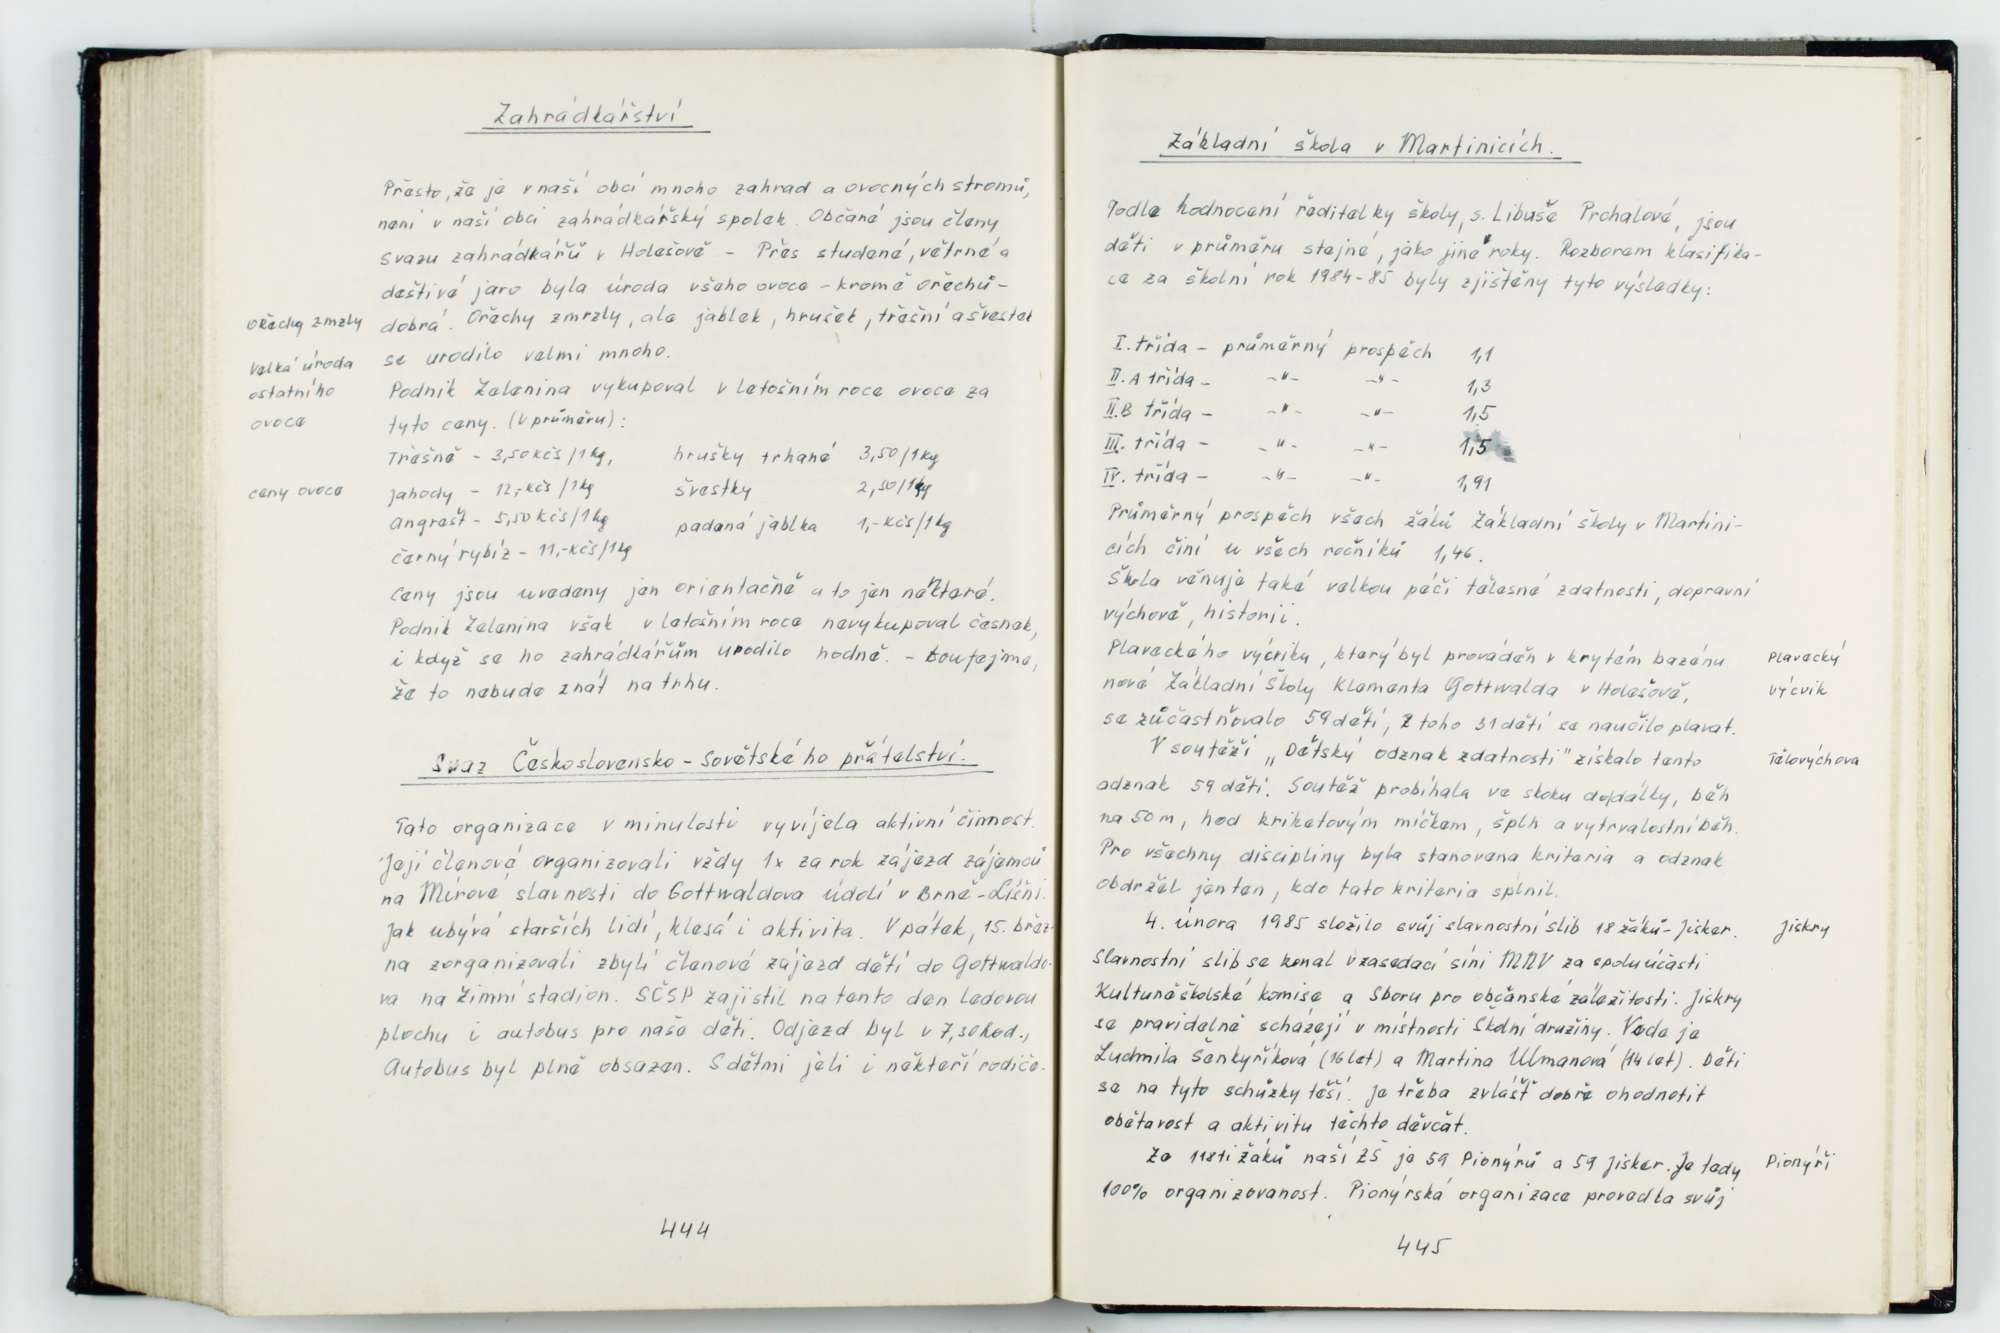 Zahrádkářství
Přesto, že je v naší obci mnoho zahrad a ovocných stromů,
není v naší obci zahrádkářský spolek. Občané jsou členy
svazu zahrádkářů v Holešově – Přes studené, větrné a
deštivé jaro byla úroda všeho ovoce – kromě ořechů –
Ořechy zmzly
dobrá. Ořechy zmrzly, ale jablek, hrušek, třešní a švestek
Velká úroda
se urodilo velmi mnoho.
ostatního
Podnik Zelenina vykupoval v letošním roce ovoce za
ovoce
tyto ceny. (V průměru):
Třešně – 3,50 Kčs/1kg, hrušky trhané 3,50/1kg
ceny ovoce
jahody – 12,- Kčs/1kg švestky 2,50/1kg
angrešt – 5,50 Kčs/1kg padaná jablka 1,- Kčs/1kg
černý rybíz – 11,- Kčs/1kg
Ceny jsou uvedeny jen orientačně a to jen některé.
Podnik Zelenina však v letošním roce nevykupoval česnek,
i když se ho zahrádkářům urodilo hodně. – Doufejme,
že to nebude znát na trhu.
Svaz Československo – Sovětského přátelství.
Tato organizace v minulosti vyvíjela aktivní činnost.
Její členové organizovali vždy 1x za rok zájezd zájemců
na Mírové slavnosti do Gottwaldova údolí v Brně – Líšni.
Jak ubývá starších lidí, klesá i aktivita. V pátek, 15. břez-
na zorganizovali zbylí členové zájezd dětí do Gottwaldo-
va na Zimní stadion. SČSP zajistil na tento den ledovou
plochu i autobus pro naše děti. Odjezd byl v 7,30 hod.,
Autobus byl plně obsazen. S dětmi jeli i někteří rodiče.
444
Základní škola v Martinicích.
Podle hodnocení ředitelky školy, s. Libuše Prchalové, jsou
děti v průměru stejné, jako jiné roky. Rozborem klasifika-
ce za školní rok 1984-85 byly zjištěny tyto výsledky:
I. třída – průměrný prospěch 1,1
II.A třída – -"- -"- 1,3
II.B třída – -"- -"- 1,5
III. třída – -"- -"- 1,5
IV. třída – -"- -"- 1,91
Průměrný prospěch všech žáků Základní školy v Martini-
cích činí u všech ročníků 1,46.
Škola věnuje také velkou péči tělesné zdatnosti, dopravní
výchově, historii.
Plaveckého výcviku, který byl prováděn v krytém bazénu Plavecký
nové Základní školy Klementa Gottwalda v Holešově, výcvik
se zůčastňovalo 59 dětí, z toho 31 dětí se naučilo plavat.
V soutěži „Dětský odznak zdatnosti" získalo tento Tělovýchova
odznak 59 dětí. Soutěž probíhala ve skoku do dálky, běh
na 50 m, hod kriketovým míčkem, šplh a vytrvalostní běh.
Pro všechny disciplíny byla stanovena kriteria a odznak
obdržel jen ten, kdo tato kriteria splnil.
4. února 1985 složilo svůj slavnostní slib 18 žáků – Jisker. Jiskry
Slavnostní slib se konal v zasedací síni MNV za spoluúčasti
Kulturněškolské komise a Sboru pro občanské záležitosti. Jiskry
se pravidelně scházejí v místnosti Školní družiny. Vede je
Ludmila Šenkyříková (16 let) a Martina Ulmanová (14 let). Děti
se na tyto schůzky těší. Je třeba zvlášť dobře ohodnotit
obětavost a aktivitu těchto děvčat.
Ze 118ti žáků naší ZŠ je 59 Pionýrů a 59 Jisker. Je tedy Pionýři
100% organizovanost. Pionýrská organizace provedla svůj
445